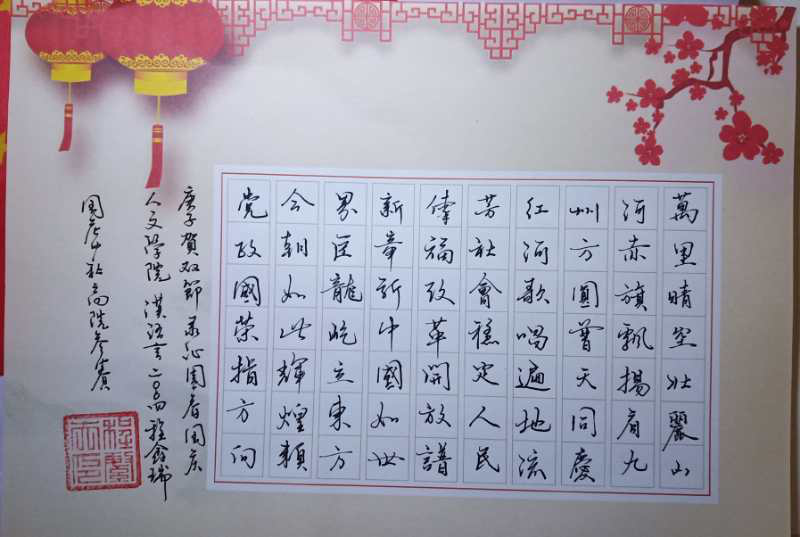 萬里晴空壯麗山
河赤旗飄揚看九
州方圓普天同慶
红河歌唱遍地流
芳社會穩定人民
倖福改革開放譜
新章新中國如世
界巨龍屹立東方
今朝如此輝煌賴
党政國策指方向
庚子賀双節 录沁園春国庆
人文學院 漢語言二〇〇四 程鑫瑞
参賽